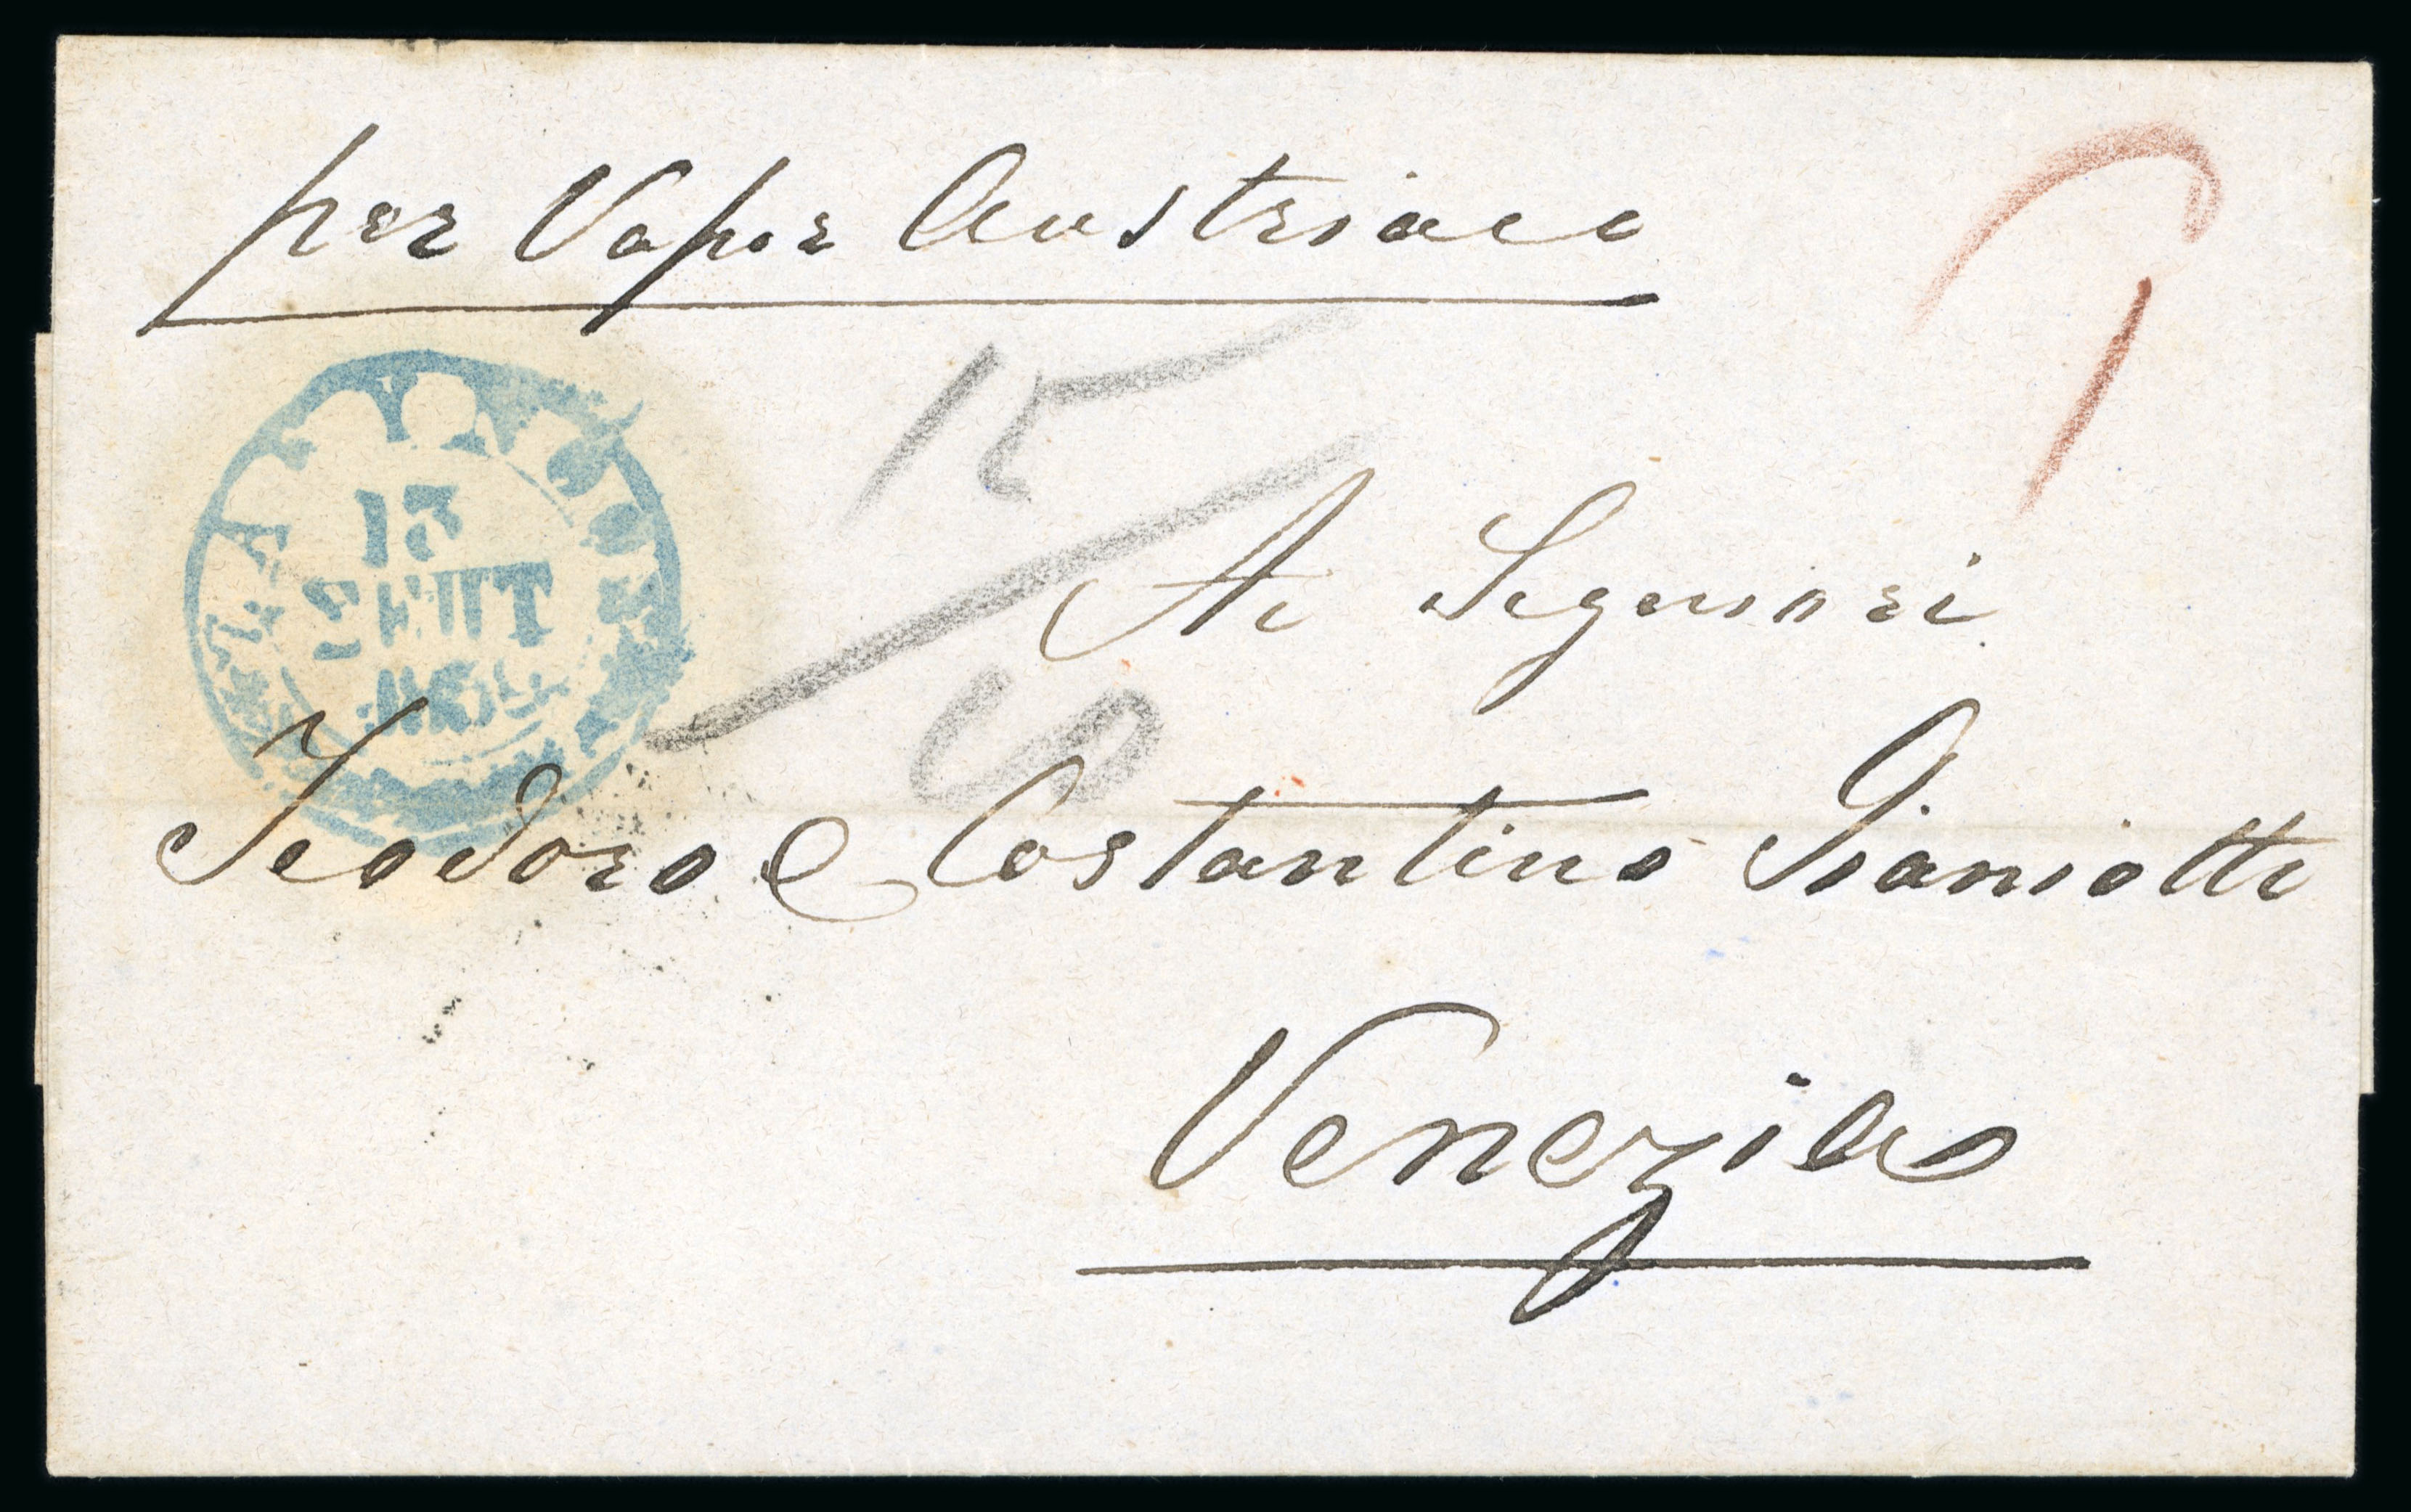 per Vapor Austriaco
15
13
СЕНТ
Ai Signori
6
Teodoro e Costantino Gianiotti
Venezia